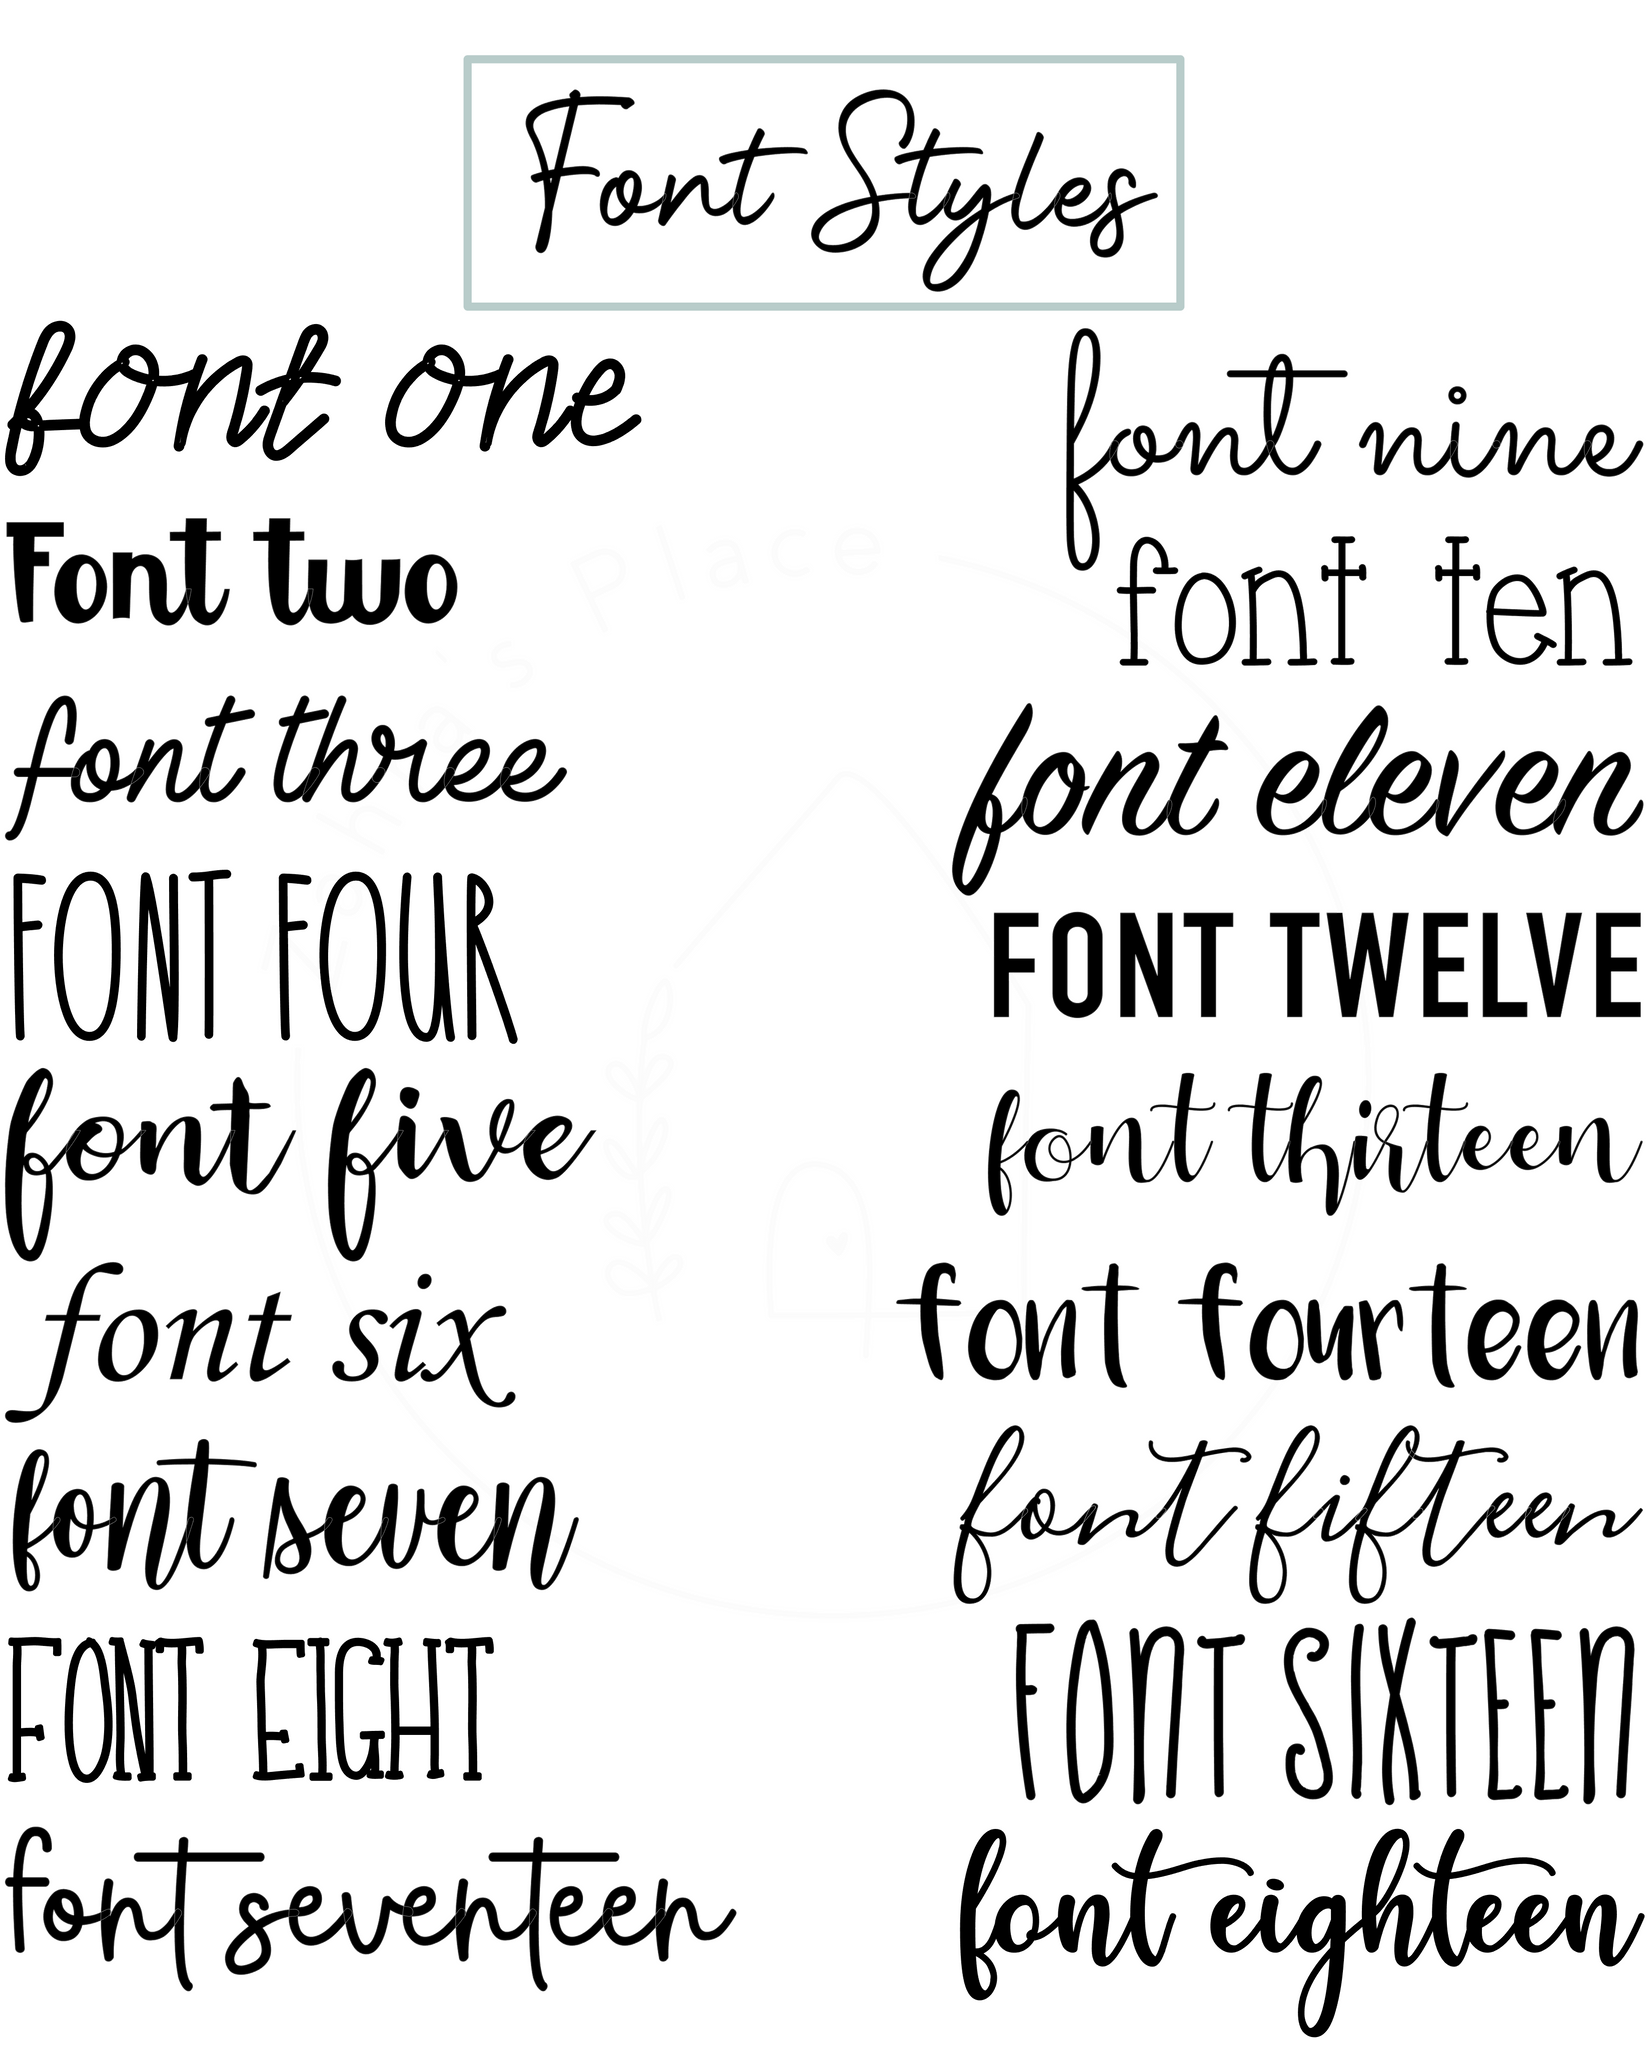 Font Styles
font one
Font two
font three
FONT FOUR
font five
font six
font seven
FONT EIGHT
font seventeen
font nine
font ten
font eleven
FONT TWELVE
font thirteen
font fourteen
font fifteen
FONT SIXTEEN
font eighteen
Place